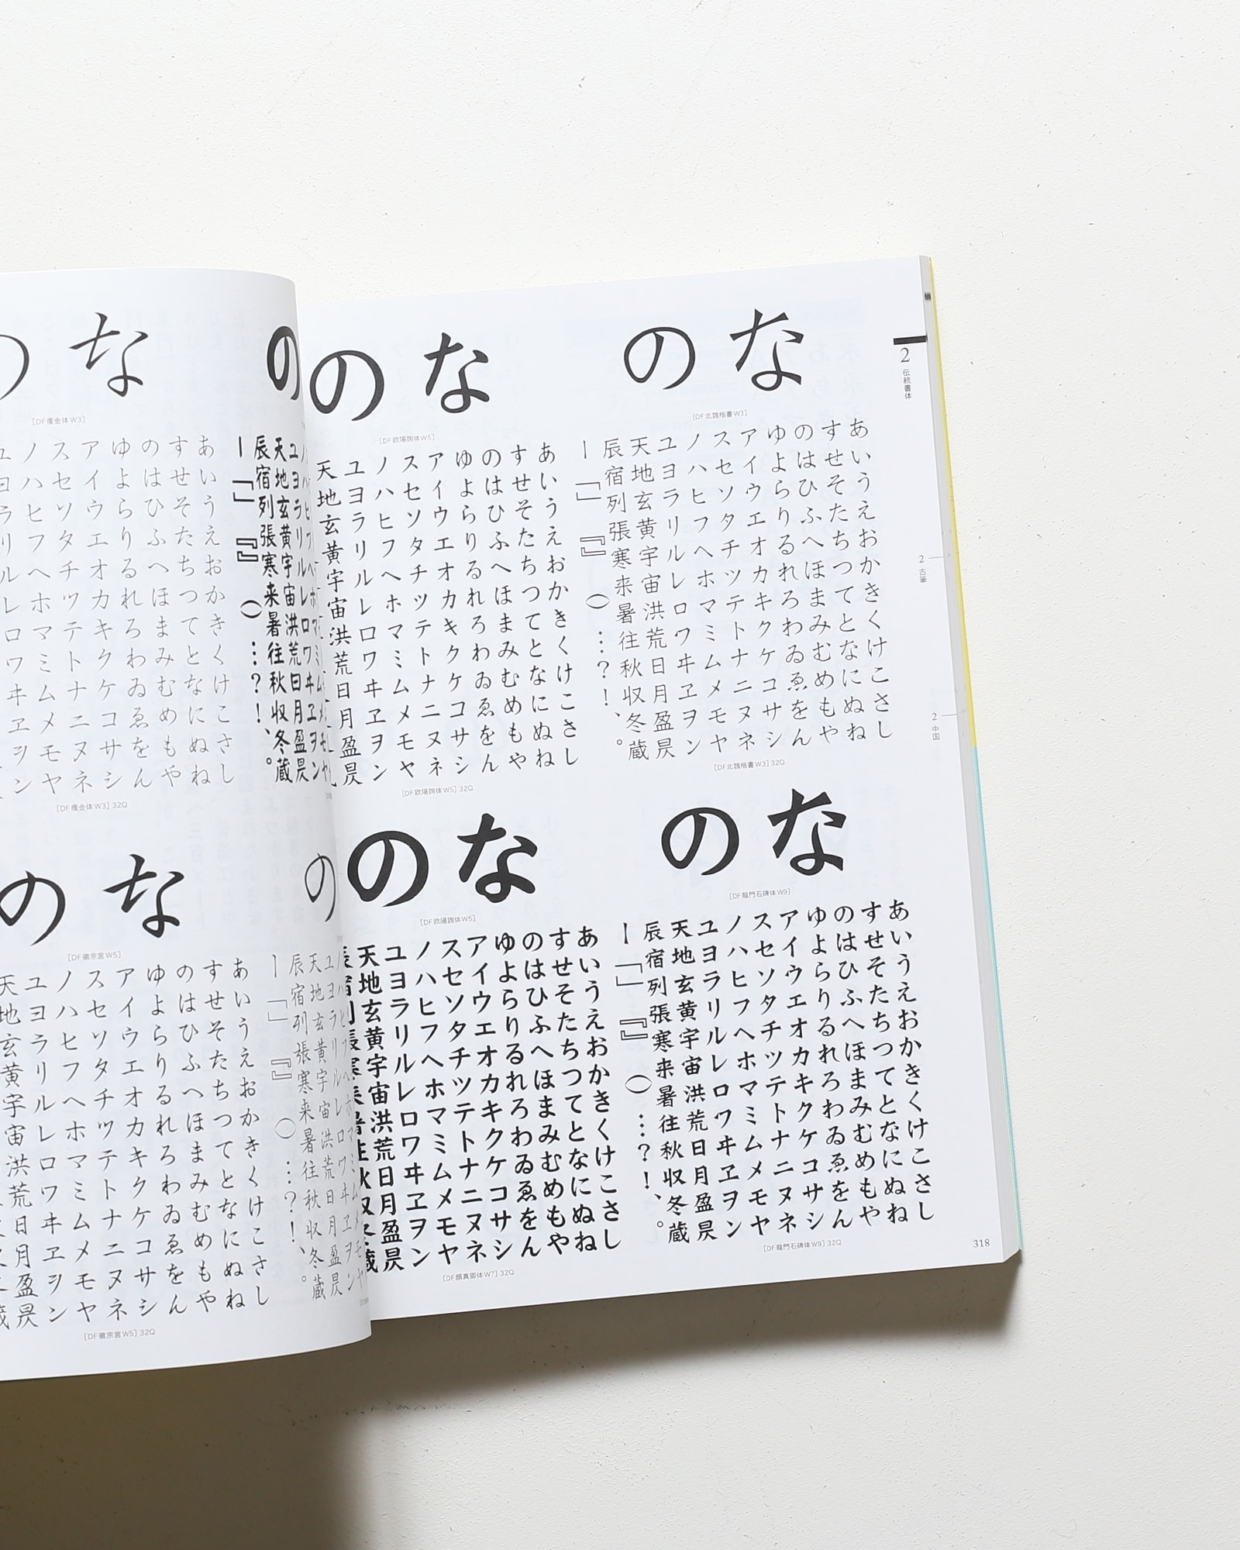 2 伝統書体
2 古筆
2 中国
のな
[DF北魏楷書W3]
あいうえおかきくけこさし
すせそたちつてとなにぬね
のはひふへほまみむめもや
ゆよらりるれろわゐゑをん
アイウエオカキクケコサシ
スセソタチツテトナニヌネ
ノハヒフヘホマミムメモヤ
ユヨラリルレロワヰヱヲン
天地玄黄宇宙洪荒日月盈昃
辰宿列張寒来暑往秋収冬蔵
ー「」『』()…?!、。
[DF北魏楷書W3] 32Q
のな
[DF欧陽詢体W5]
あいうえおかきくけこさし
すせそたちつてとなにぬね
のはひふへほまみむめもや
ゆよらりるれろわゐゑをん
アイウエオカキクケコサシ
スセソタチツテトナニヌネ
ノハヒフヘホマミムメモヤ
ユヨラリルレロワヰヱヲン
天地玄黄宇宙洪荒日月盈昃
[DF欧陽詢体W5] 32Q
のな
[DF龍門石碑体W9]
あいうえおかきくけこさし
すせそたちつてとなにぬね
のはひふへほまみむめもや
ゆよらりるれろわゐゑをん
アイウエオカキクケコサシ
スセソタチツテトナニヌネ
ノハヒフヘホマミムメモヤ
ユヨラリルレロワヰヱヲン
天地玄黄宇宙洪荒日月盈昃
辰宿列張寒来暑往秋収冬蔵
ー「」『』()…?!、。
[DF龍門石碑体W9] 32Q
のな
[DF欧陽詢体W5]
あいうえおかきくけこさし
すせそたちつてとなにぬね
のはひふへほまみむめもや
ゆよらりるれろわゐゑをん
アイウエオカキクケコサシ
スセソタチツテトナニヌネ
ノハヒフヘホマミムメモヤ
ユヨラリルレロワヰヱヲン
天地玄黄宇宙洪荒日月盈昃
[DF顔真卿体W7] 32Q
318
の
ユヨラリルレロワヰヱヲン
天地玄黄宇宙洪荒日月盈昃
辰宿列張寒来暑往秋収冬蔵
ー「」『』()…?!、。
のな
[DF痩金体W3]
あいうえおかきくけこさし
すせそたちつてとなにぬね
のはひふへほまみむめもや
ゆよらりるれろわゐゑをん
アイウエオカキクケコサシ
スセソタチツテトナニヌネ
ノハヒフヘホマミムメモヤ
ユヨラリルレロワヰヱヲン
[DF痩金体W3] 32Q
の
ユヨラリルレロワヰヱヲン
天地玄黄宇宙洪荒日月盈昃
辰宿列張寒来暑往秋収冬蔵
ー「」『』()…?!、。
のな
[DF徽宗宮W5]
あいうえおかきくけこさし
すせそたちつてとなにぬね
のはひふへほまみむめもや
ゆよらりるれろわゐゑをん
アイウエオカキクケコサシ
スセソタチツテトナニヌネ
ノハヒフヘホマミムメモヤ
ユヨラリルレロワヰヱヲン
天地玄黄宇宙洪荒日月盈昃
[DF徽宗宮W5] 32Q